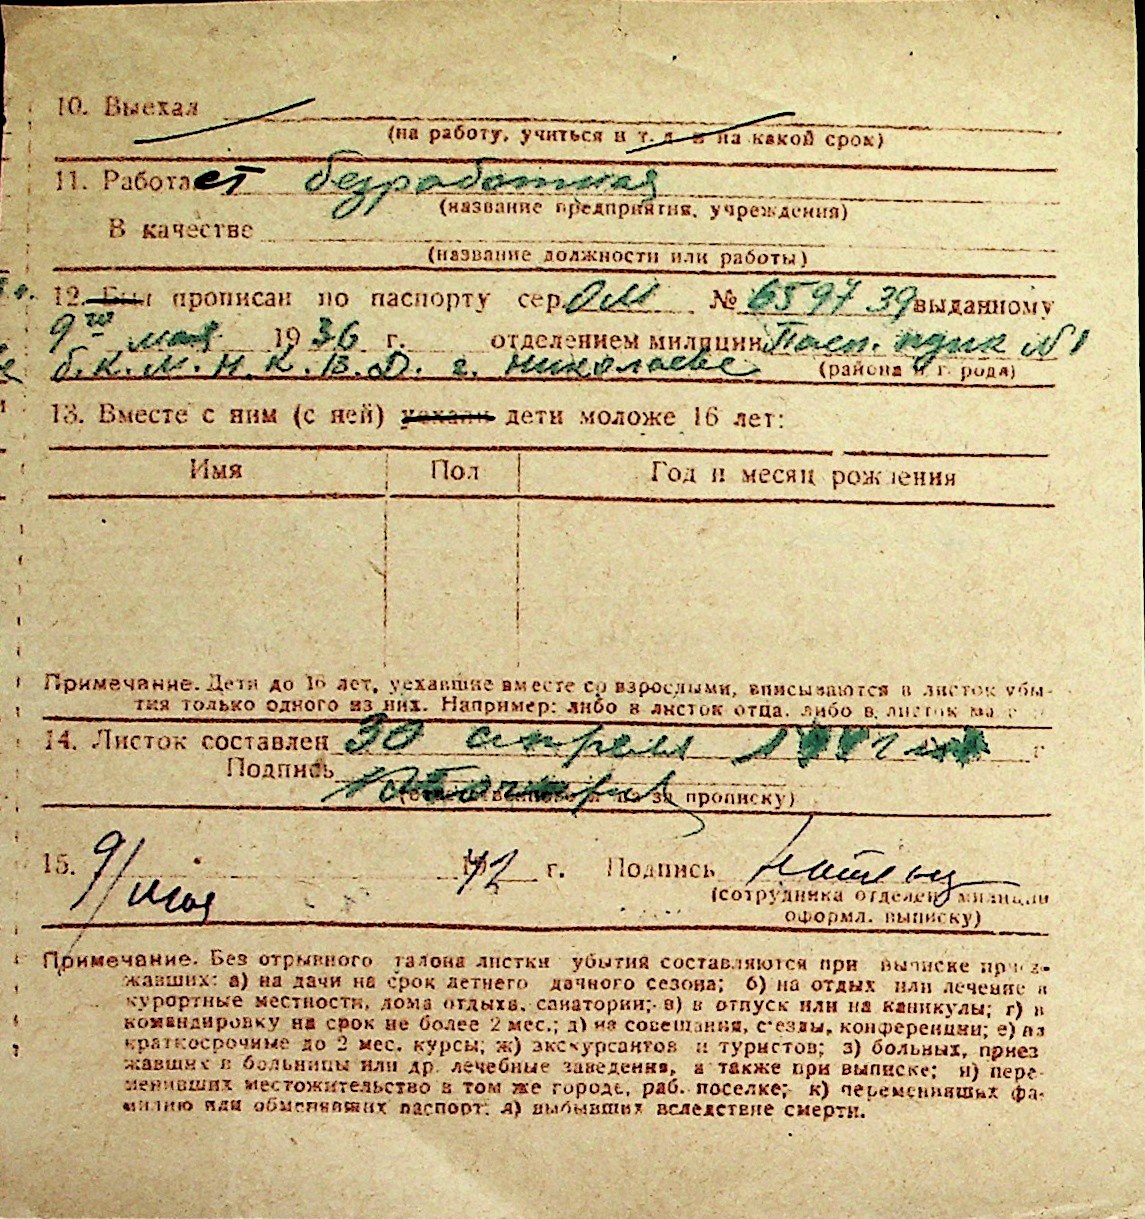 10. Выехал
(на работу, учиться и т. д. и на какой срок)
11. Работает безработная
(название предприятия, учреждения)
В качестве
(название должности или работы)
12. Был прописан по паспорту сер. ОМ № 659739 выданному
9го мая 1936 г. отделением милиции Пасп. пдик №1
б. К. М. Н. К. В. Д. г. Николаеве (района и города)
13. Вместе с ним (с ней) уехали дети моложе 16 лет:
Имя Пол Год и месяц рождения
Примечание. Дети до 16 лет, уехавшие вместе со взрослыми, вписываются в листок убы-
тия только одного из них. Например: либо в листок отца, либо в листок
14. Листок составлен 30 апреля г
Подпись
(ответственного за прописку)
15. 9/мая 42 г. Подпись
(сотрудника отделен. милиции
оформл. выписку)
Примечание. Без отрывного талона листки убытия составляются при выписке приез-
жавших: а) на дачи на срок летнего дачного сезона; б) на отдых или лечение в
курортные местности, дома отдыха, санатории; в) в отпуск или на каникулы; г) в
командировку на срок не более 2 мес.; д) на совещания, с'езды, конференции; е) на
краткосрочные до 2 мес. курсы; ж) экскурсантов и туристов; з) больных, приез
жавших в больницы или др. лечебные заведения, а также при выписке; и) пере-
менивших местожительство в том же городе, раб. поселке; к) переменивших фа-
милию или обменявших паспорт; л) выбывших вследствие смерти.